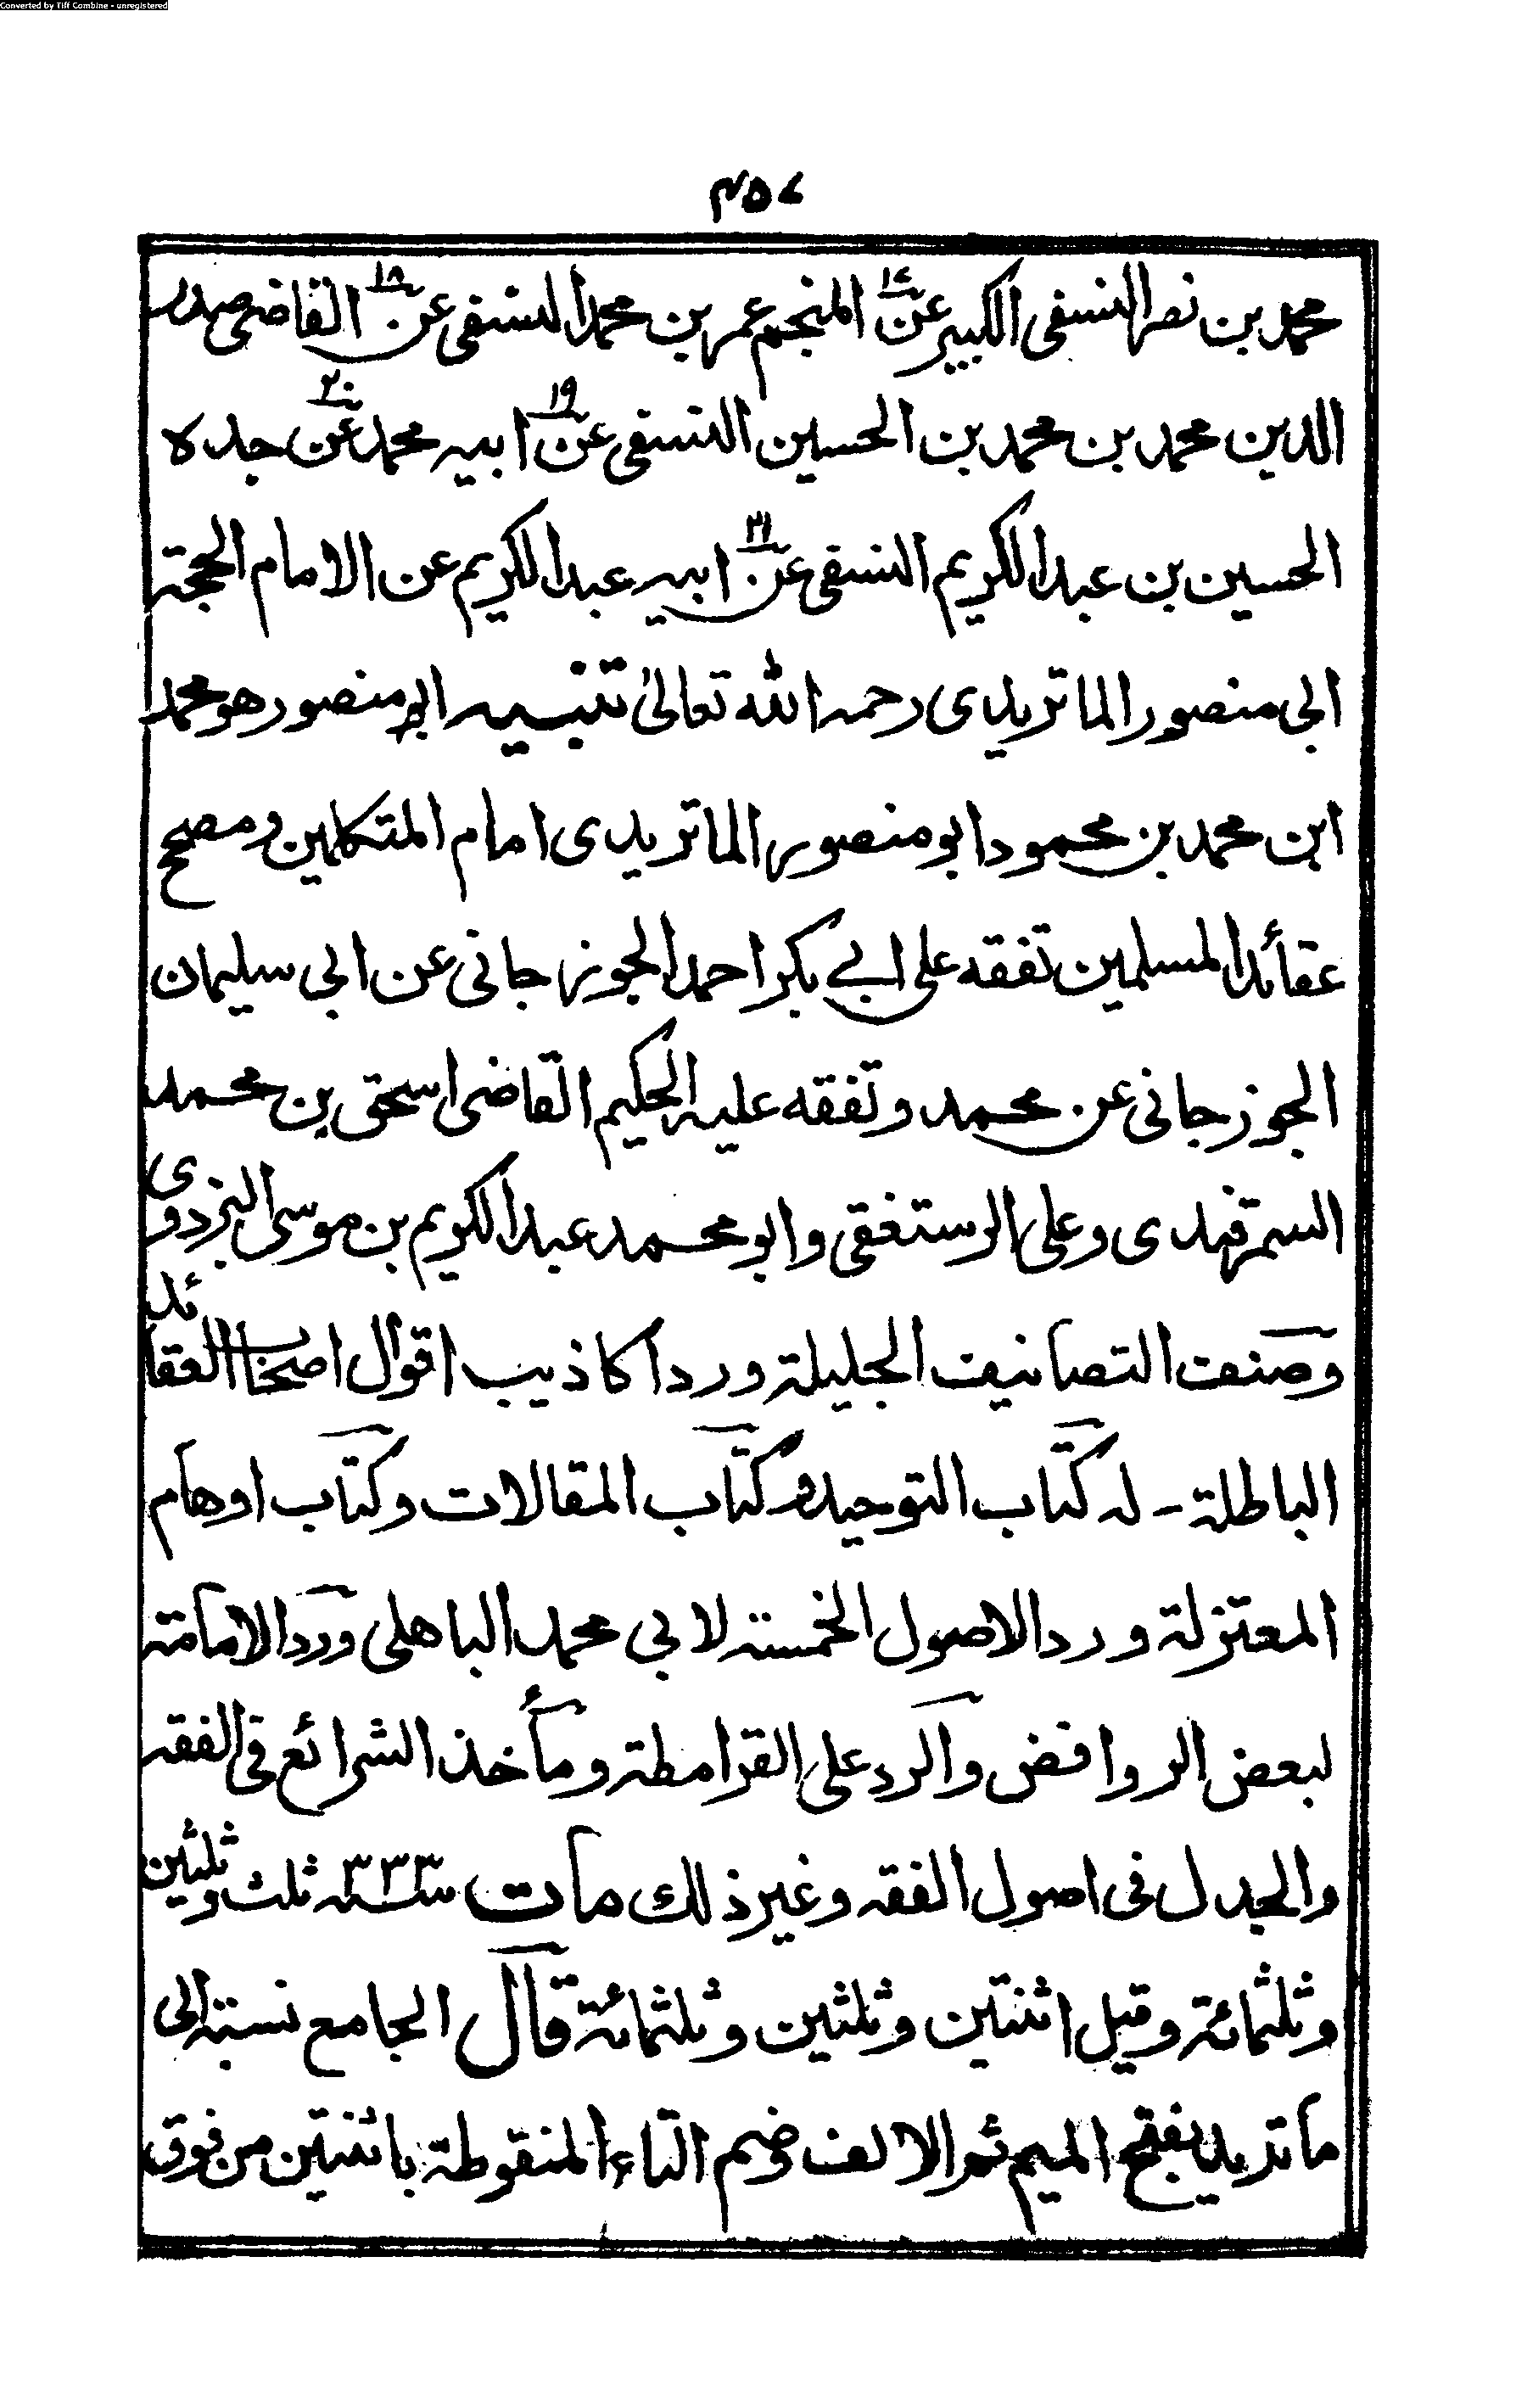 Converted by Tiff Combine - unregistered
٣٥٧
محمد بن نصر النسفى الكبير عن المنجم عمر بن محمد النسفى عن ١٨ القاضى صدر
الدين محمد بن محمد بن الحسين النسفى عن ١٩ ابيه محمد عن ٢٠ جده
الحسين بن عبد الكريم النسفى عن ٢١ ابيه عبد الكريم عن الامام الحجة
ابى منصور الماتريدى رحمه الله تعالىٰ تنبيه ابو منصور هو محمد
ابن محمد بن محمود ابو منصور الماتريدى امام المتكلمين ومصحح
عقائد المسلمين تفقه على ابى بكر احمد الجوزجانى عن ابى سليمان
الجوزجانى عن محمد وتفقه عليه الحكيم القاضى اسحق بن محمد
السمرقندى وعلى الرستغفى وابو محمد عبد الكريم بن موسى البزدوى
وصنف التصانيف الجليلة ورد اكاذيب اقوال اصحاب العقائد
الباطلة - له كتاب التوحيد وكتاب المقالات وكتاب اوهام
المعتزلة ورد الاصول الخمسة لابى محمد الباهلى ورد الامامة
لبعض الروافض والرد على القرامطة ومأخذ الشرائع فى الفقه
والجدل فى اصول الفقه وغير ذلك مات سنة ٣٣٣ ثلث وثلثين
وثلثمائة وقيل اثنتين وثلثين وثلثمائة قال الجامع نسبته الى
ماتريد بفتح الميم ثم الالف وضم التاء المنقوطة باثنتين من فوق